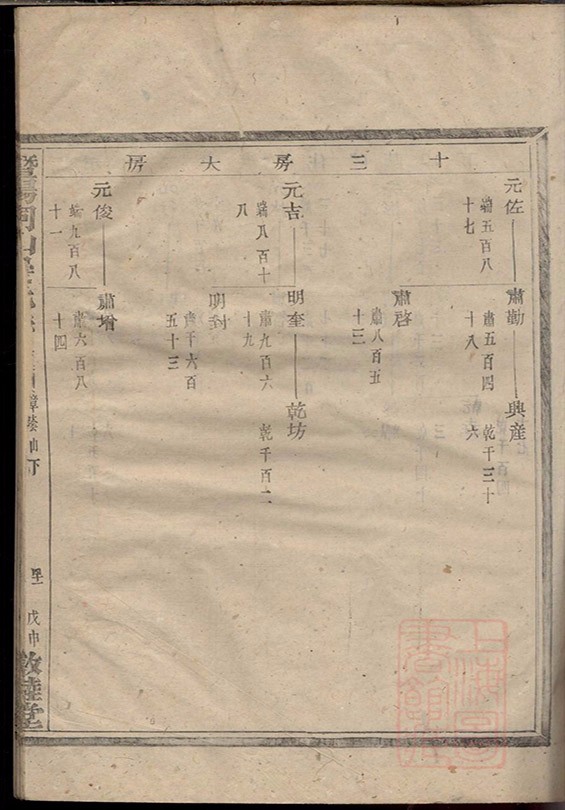 十三房大房
元佐
端五百八
十七
肅勤
肅五百四
十八
興産
乾千三十
六
肅啓
肅八百五
十三
元吉
端八百十
八
明奎
肅九百六
十九
乾坊
乾千百二
明封
肅千六百
五十三
元俊
端九百八
十一
肅增
肅六百八
十四
戊申
敦睦堂